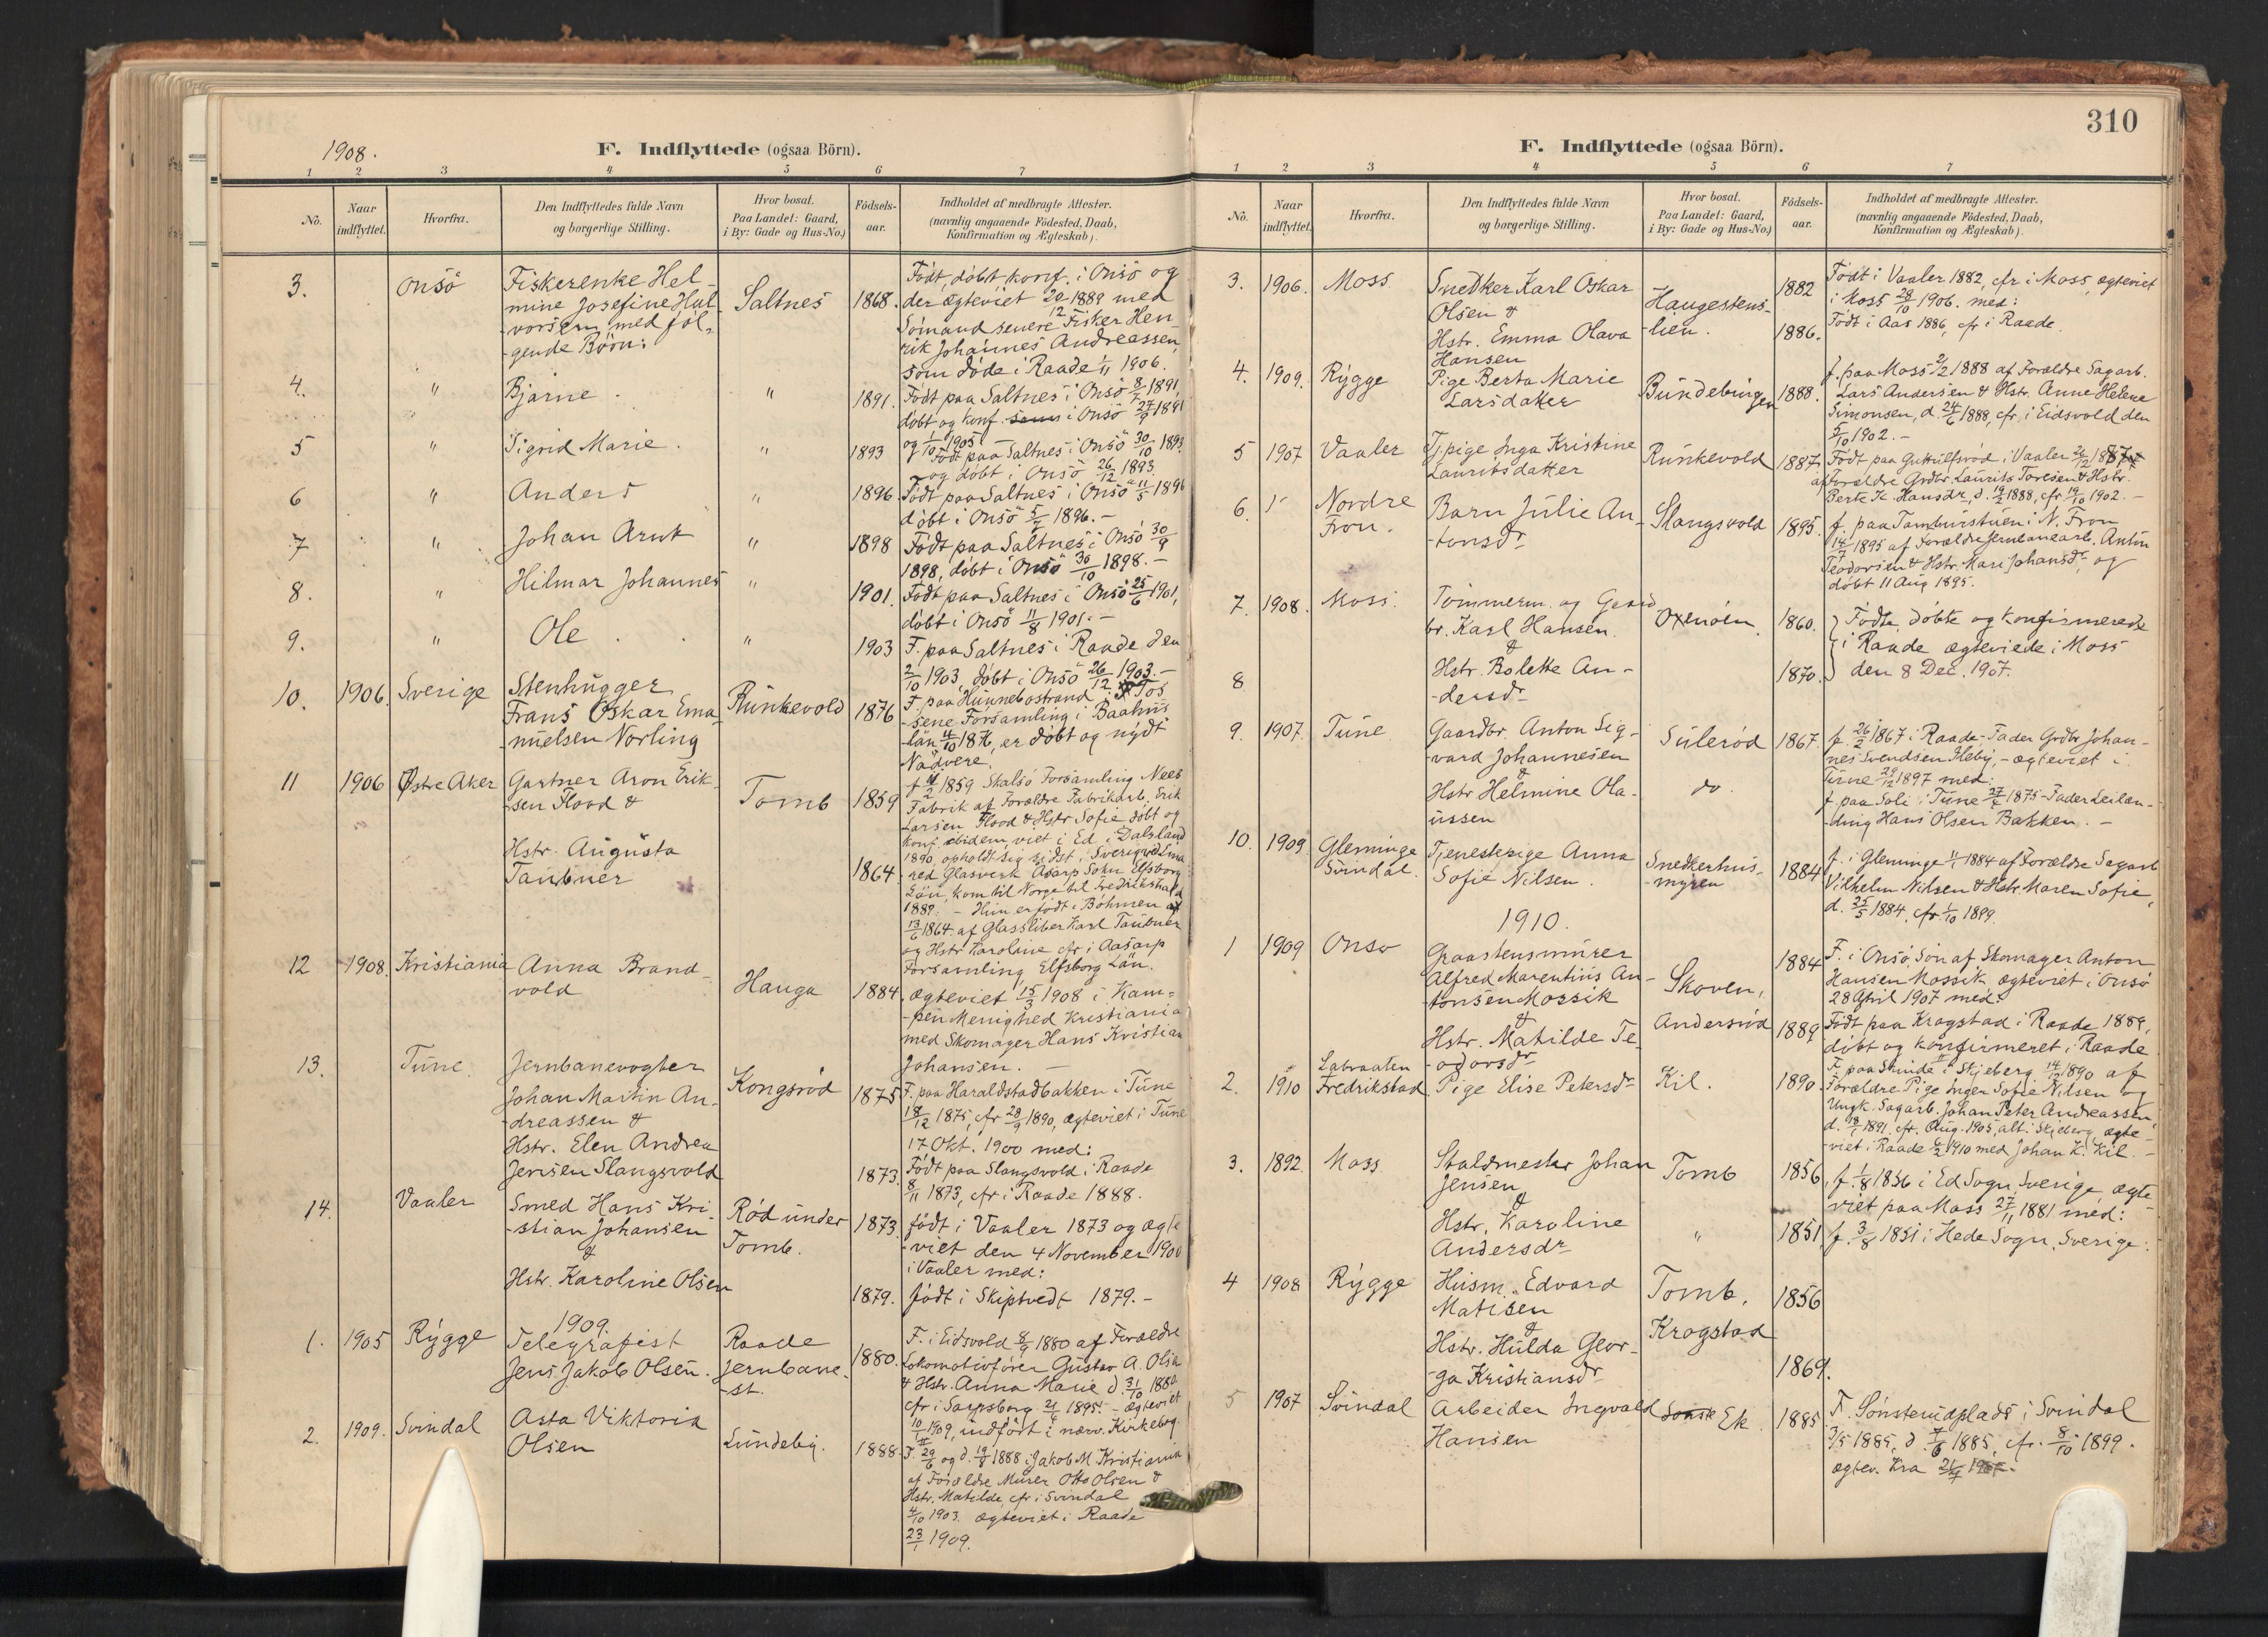 1908.
F. Indflyttede (ogsaa Börn).
1 2 3 4 5 6 7
No.
Naar indflyttet.
Hvorfra.
Den Indflyttedes fulde Navn og borgerlige Stilling.
Hvor bosat. Paa Landet: Gaard, i By: Gade og Hus-No.)
Födsels-aar.
Indholdet af medbragte Attester. (navnlig angaaende Födested, Daab, Konfirmation og Ægteskab).
3. Onsö
Fiskerenke Hel-
mine Josefine Hal-
-vorsen med föl-
-gende Börn:
Saltnes 1868.
Födt, döbt, konf. i Onsö og
der ægteviet 20/12 1889 med
Sömand senere Fisker Hen-
rik Johannes Andreassen,
som döde i Raade 1/11 1906.
4. " Bjarne. " 1891.
Födt paa Saltnes i Onsö 8/7 1891,
döbt og konf. i Onsö 27/9 1891
og 1/10 1905.
5 " Sigrid Marie. " 1893
Födt paa Saltnes i Onsö 30/10 1893
og döbt i Onsö 26/12 1893.
6 " Anders " 1896.
Födt paa Saltnes i Onsö 11/5 1896
döbt i Onsö 5/7 1896. -
7 " Johan Arnt " 1898
Födt paa Saltnes i Onsö 30/9
1898, döbt i Onsö 30/10 1898. -
8. " Hilmar Johannes " 1901.
Födt paa Saltnes i Onsö 25/6 1901,
döbt i Onsö 11/8 1901. -
9. " Ole . . " 1903
F. paa Saltnes i Raade den
2/10 1903, döbt i Onsö 26/12 1903. -
10. 1906. Sverige
Stenhugger
Frans Oskar Ema-
-nuelsen Norling
Runkevold 1876
F. paa Hunnebostrand Tos
-sene Forsamling i Baahus
-län 4/10 1876, er döbt og nydt
Nadvere.
11 1906 Østre Aker
Gartner Aron Erik-
-sen Flood &
Tomb 1859
Hstr. Augusta
Taubner
1864
f 1859 Skalsö Forsamling Nees
Fabrik af Forældre Fabrikarb. Erik
Larsen Flood & Hstr Sofie döbt og
konf. ibidem, viet i Ed i Dalsland
1890, opholdt sig sidst i Sverige ved Lima
red Glasverk Aasarp Sokn Elfsborg
Län, kom til Norge til Fredrikshald
1889. - Hun er födt i Böhmen
13/6 1864 af Glassliber Karl Taubner
og Hstr Karoline cfr i Aasarp
Forsamling Elfsborg Län.
12 1908. Kristiania
Anna Brand-
vold
Hauga 1884.
ægteviet 15/3 1908 i Kam-
-pen Menighed Kristiania
med Skomager Hans Kristian
Johansen. -
13. Tune.
Jernbanevogter
Johan Martin An-
-dreassen &
Hstr. Elen Andrea
Jensen Slangsvold
Kongsrød 1875
1873.
F. paa Haraldstadbakken i Tune
18/12 1875, cfr 28/9 1890, ægteviet i Tune
17 Okt. 1900 med:
Födt paa Slangsvold i Raade
8/11 1873, cfr i Raade 1888.
14. Vaaler
Smed Hans Kri-
-stian Johansen
&
Hstr. Karoline Olsen
Rød under
Tomb.
1873.
1879.
födt i Vaaler 1873 og ægte
-viet den 4 November 1900
i Vaaler med:
födt i Skiptvedt 1879. -
1909.
1. 1905 Rygge
Telegrafist
Jens Jakob Olsen.
Raade
Jernbane-
-st.
1880.
F. i Eidsvold 8/9 1880 af Forældre
Lokomotivförer Gustav A. Olsen
& Hstr. Anna Marie d. 31/10 1880
cfr i Sarpsborg 21/4 1895. - ægteviet
10/1 1909, indfört i nærv. Kirkebog.
2. 1909. Svindal
Asta Viktoria
Olsen
Lundeby. 1888.
F. 29/6 og d. 19/8 1888 i Jakob M. Kristiania
af Forældre Murer Otto Olsen &
Hstr. Matilde, cfr i Svindal
4/10 1903. ægteviet i Raade
23/1 1909.
310
F. Indflyttede (ogsaa Börn).
1 2 3 4 5 6 7
No.
Naar indflyttet.
Hvorfra.
Den Indflyttedes fulde Navn og borgerlige Stilling.
Hvor bosat. Paa Landet: Gaard, i By: Gade og Hus-No.)
Födsels-aar.
Indholdet af medbragte Attester. (navnlig angaaende Födested, Daab, Konfirmation og Ægteskab).
3. 1906. Moss
Snedker Karl Oskar
Olsen &
Hstr. Emma Olava
Hansen
Haugestens-
-lien.
1882
1886.
Födt i Vaaler 1882, cfr i Moss, ægteviet
i Moss 28/10 1906. med:
Födt i Aas 1886, cfr i Raade.
4. 1909. Rygge
Pige Berta Marie
Larsdatter
Bundebingen 1888.
f. paa Moss 2/2 1888 af Forældre Sagarb.
Lars Andersen & Hstr. Anne Helene
Simonsen, d. 24/6 1888, cfr. i Eidsvold den
5/10 1902. -
5 1907 Vaaler
Tj.pige Inga Kristine
Lauritsdatter
Runkevold 1887.
Födt paa Guttulfsröd i Vaaler 1887
af Forældre Grdbr. Laurits Toresen & Hstr.
Berte K. Hansdr, d. 19/2 1888, cfr 19/10 1902. -
6. Nordre
Fron.
Barn Julie An-
-tonsdr
Slangsvold 1895.
f. paa Tamburstuen i N. Fron
14/7 1895 af Forældre Jernbanearb. Anton
Teodorsen & Hstr. Mari Johansdr, og
döbt 11 Aug 1895.
7. 1908. Moss.
Tömmerm. og Gaard
br. Karl Hansen.
&
Oxenöen. 1860.
8
Hstr. Bolette An-
-dersdr
1870.
Födte, döbte og konfirmerede
i Raade ægteviede i Moss
den 8 Dec. 1907.
9. 1907. Tune
Gaardbr. Anton Sig-
-vard Johannesen
&
Hstr Helmine Ola-
ussen
Sulerød 1867.
do.
f. 26/2 1867 i Raade - Fader Grdbr Johan-
nes Svendsen Heby, - ægteviet i
Tune 29/12 1897 med:
f. paa Soli i Tune 27/4 1875 - Fader Leilæn-
-ding Hans Olsen Bakken. -
10. 1909 Glemminge
Svindal.
Tjenestepige Anna
Sofie Nilsen.
Snedkerhus-
-myren
1884
f. i Glemminge 1/1 1884 af Forældre Sagarb
Vilhelm Nilsen & Hstr. Maren Sofie,
d. 25/5 1884, cfr 1/10 1899
1910.
1 1909 Onsö
Graastensmurer
Alfred Marentius An-
-tonsen Mossik
&
Hstr. Matilde Te-
odorsdr
Skoven,
Andersrød
1884
1889
F. i Onsö, Sön af Skomager Anton
Hansen Mossik ægteviet i Onsö
28 April 1907 med:
Födt paa Kragstad i Raade 1889,
döbt og konfirmeret i Raade
2. 1910
Fredrikstad
Pige Elise Petersdr Kil. 1890.
F. paa Skinde i Skjeberg 14/12 1890 af
Forældre Pige Inger Sofie Nilsen og
Ungk. Sagarb. Johan Peter Andreassen,
d. 18/1 1891, cfr. Aug. 1905, alt i Skjeberg, ægte-
-viet i Raade 6/2 1910 med Johan K. Kil. -
3. 1892. Moss
Staldmester Johan
Jensen
&
Hstr. Karoline
Andersdr
Tomb
"
1856
1851
f. 1/8 1856 i Ed Sogn, Sverige, ægte
viet paa Moss 27/11 1881 med:
f. 3/8 1851 i Hede Sogn, Sverige.
4 1908 Rygge
Husm. Edvard
Matisen
&
Hstr. Hulda Geor-
-ga Kristiansdr
Tomb,
Kragstad
1856
1869.
5 1907 Svindal
Arbeider Ingvald
Hansen
Ek 1885
F. Sönsterudplads i Svindal
3/5 1885, d. 7/6 1885, cfr. 8/10 1899.
ægtev. Kra